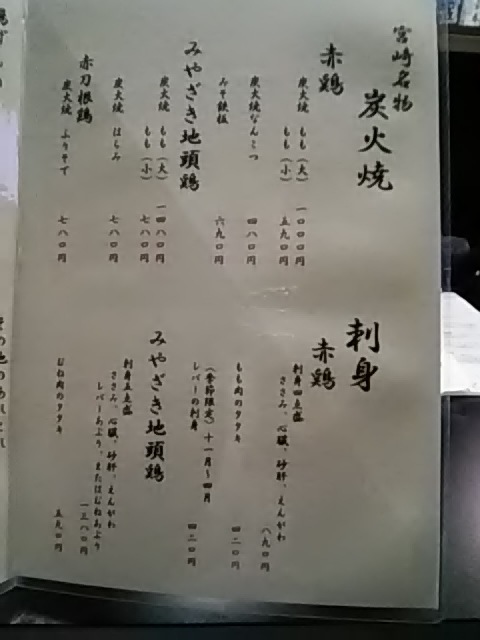 宮崎名物
炭火焼
赤鶏
炭火焼 もも(大) 一〇〇〇円
炭火焼 もも(小) 五九〇円
炭火焼なんこつ 四八〇円
みそ鉄板 六九〇円
みやざき地頭鶏
炭火焼 もも(大) 一四八〇円
炭火焼 もも(小) 七八〇円
炭火焼 はらみ 七八〇円
赤刀根鶏
炭火焼 ふりそで 七八〇円
刺身
赤鶏
刺身四点盛
ささみ、心臓、砂肝、えんがわ 八九〇円
もも肉のタタキ 四二〇円
(季節限定)十一月〜四月
レバーの刺身 四二〇円
みやざき地頭鶏
刺身五点盛
ささみ、心臓、砂肝、えんがわ
レバーあぶり、またはむねあぶり
一三八〇円
むね肉のタタキ 五九〇円